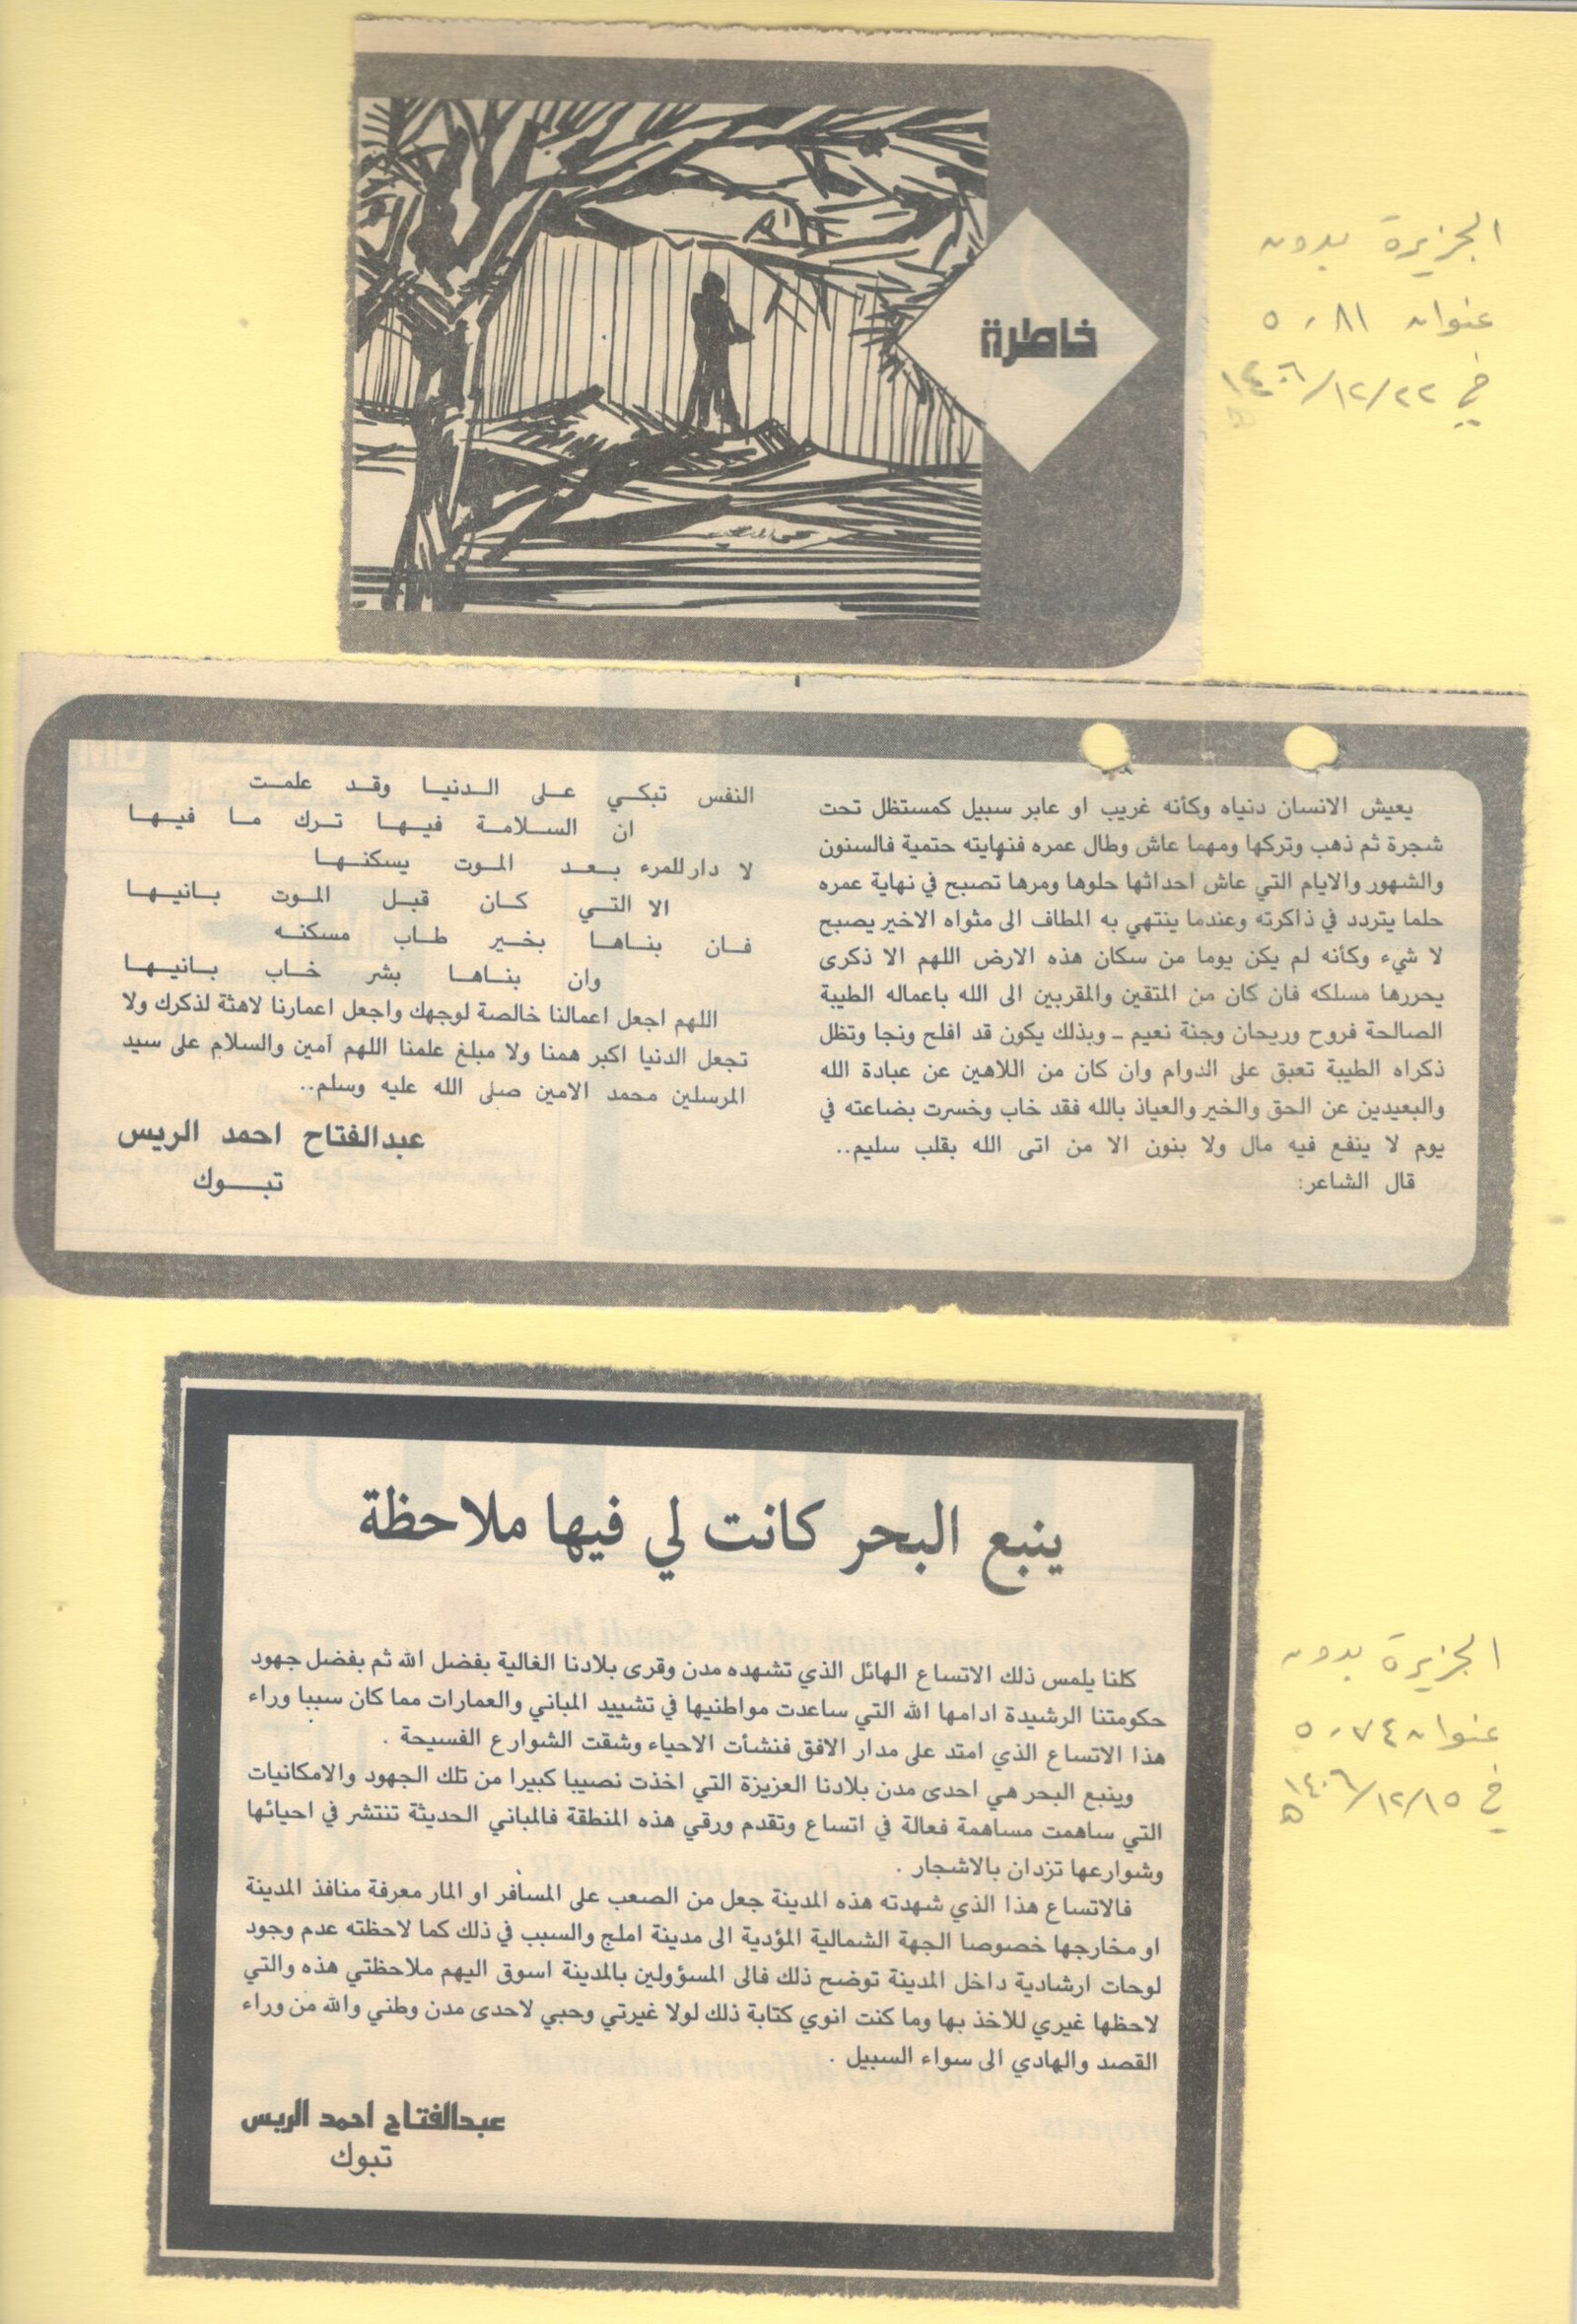 خاطرة
الجزيرة بدون
عنوان ٥٠٨١
في ١٤٠٦/١٢/٢٢
هـ
يعيش الانسان دنياه وكأنه غريب او عابر سبيل كمستظل تحت
شجرة ثم ذهب وتركها ومهما عاش وطال عمره فنهايته حتمية فالسنون
والشهور والايام التي عاش احداثها حلوها ومرها تصبح في نهاية عمره
حلما يتردد في ذاكرته وعندما ينتهي به المطاف الى مثواه الاخير يصبح
لا شيء وكأنه لم يكن يوما من سكان هذه الارض اللهم الا ذكرى
يحررها مسلكه فان كان من المتقين والمقربين الى الله باعماله الطيبة
الصالحة فروح وريحان وجنة نعيم ــ وبذلك يكون قد افلح ونجا وتظل
ذكراه الطيبة تعبق على الدوام وان كان من اللاهين عن عبادة الله
والبعيدين عن الحق والخير والعياذ بالله فقد خاب وخسرت بضاعته في
يوم لا ينفع فيه مال ولا بنون الا من اتى الله بقلب سليم..
قال الشاعر:
النفس تبكي على الدنيا وقد علمت
ان السلامة فيها ترك ما فيها
لا دار للمرء بعد الموت يسكنها
الا التي كان قبل الموت بانيها
فان بناها بخير طاب مسكنه
وان بناها بشر خاب بانيها
اللهم اجعل اعمالنا خالصة لوجهك واجعل اعمارنا لاهثة لذكرك ولا
تجعل الدنيا اكبر همنا ولا مبلغ علمنا اللهم آمين والسلام على سيد
المرسلين محمد الامين صلى الله عليه وسلم..
عبدالفتاح احمد الريس
تبوك
ينبع البحر كانت لي فيها ملاحظة
كلنا يلمس ذلك الاتساع الهائل الذي تشهده مدن وقرى بلادنا الغالية بفضل الله ثم بفضل جهود
حكومتنا الرشيدة ادامها الله التي ساعدت مواطنيها في تشييد المباني والعمارات مما كان سببا وراء
هذا الاتساع الذي امتد على مدار الافق فنشأت الاحياء وشقت الشوارع الفسيحة .
وينبع البحر هي احدى مدن بلادنا العزيزة التي اخذت نصيبا كبيرا من تلك الجهود والامكانيات
التي ساهمت مساهمة فعالة في اتساع وتقدم ورقي هذه المنطقة فالمباني الحديثة تنتشر في احيائها
وشوارعها تزدان بالاشجار .
فالاتساع هذا الذي شهدته هذه المدينة جعل من الصعب على المسافر او المار معرفة منافذ المدينة
او مخارجها خصوصا الجهة الشمالية المؤدية الى مدينة املج والسبب في ذلك كما لاحظته عدم وجود
لوحات ارشادية داخل المدينة توضح ذلك فالى المسؤولين بالمدينة اسوق اليهم ملاحظتي هذه والتي
لاحظها غيري للاخذ بها وما كنت انوي كتابة ذلك لولا غيرتي وحبي لاحدى مدن وطني والله من وراء
القصد والهادي الى سواء السبيل .
عبدالفتاح احمد الريس
تبوك
الجزيرة بدون
عنوان ٥٠٧٤
في ١٤٠٦/١٢/١٥
هـ